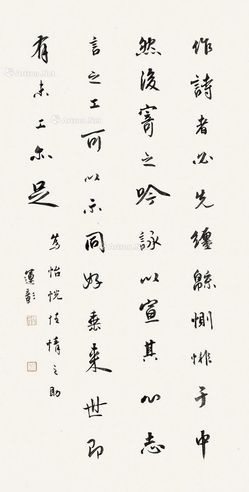 作詩者必先纏綿惻悱于中
然後寄之吟詠以宣其心志
言之工可以示同好垂來世即
有未工亦足
為怡悅性情之助
運彰